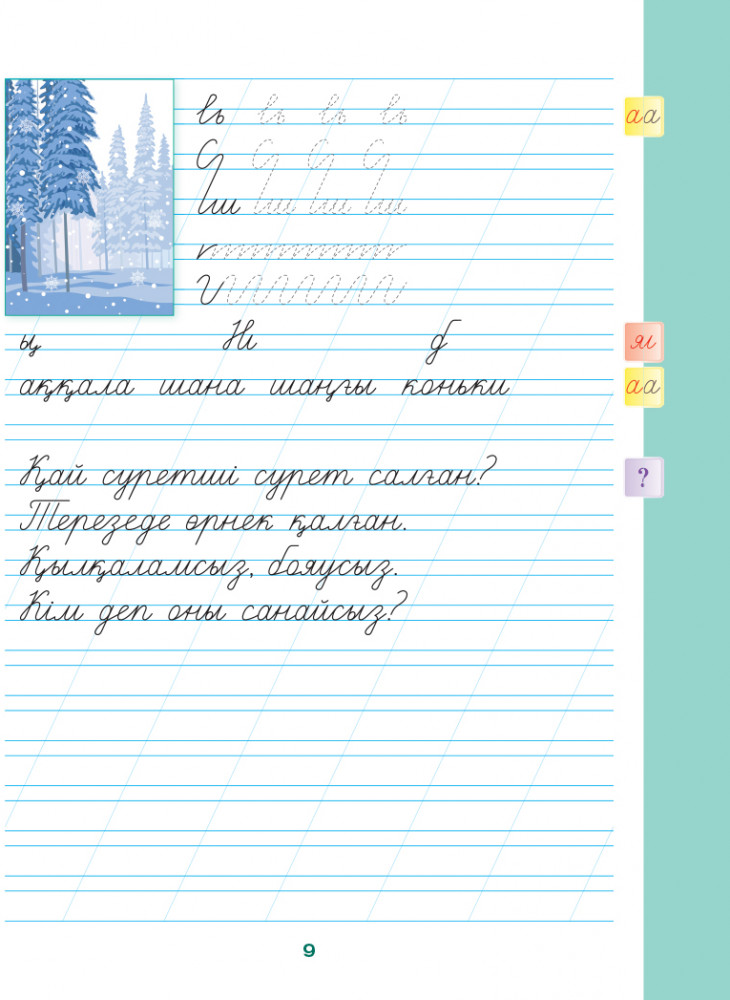 аа
ың Ні б
яи
аққала шана шаңғы коньки
аа
Қай суретші сурет салған?
?
Терезеде өрнек қалған.
Қылқаламсыз, бояусыз.
Кім деп оны санайсыз?
9